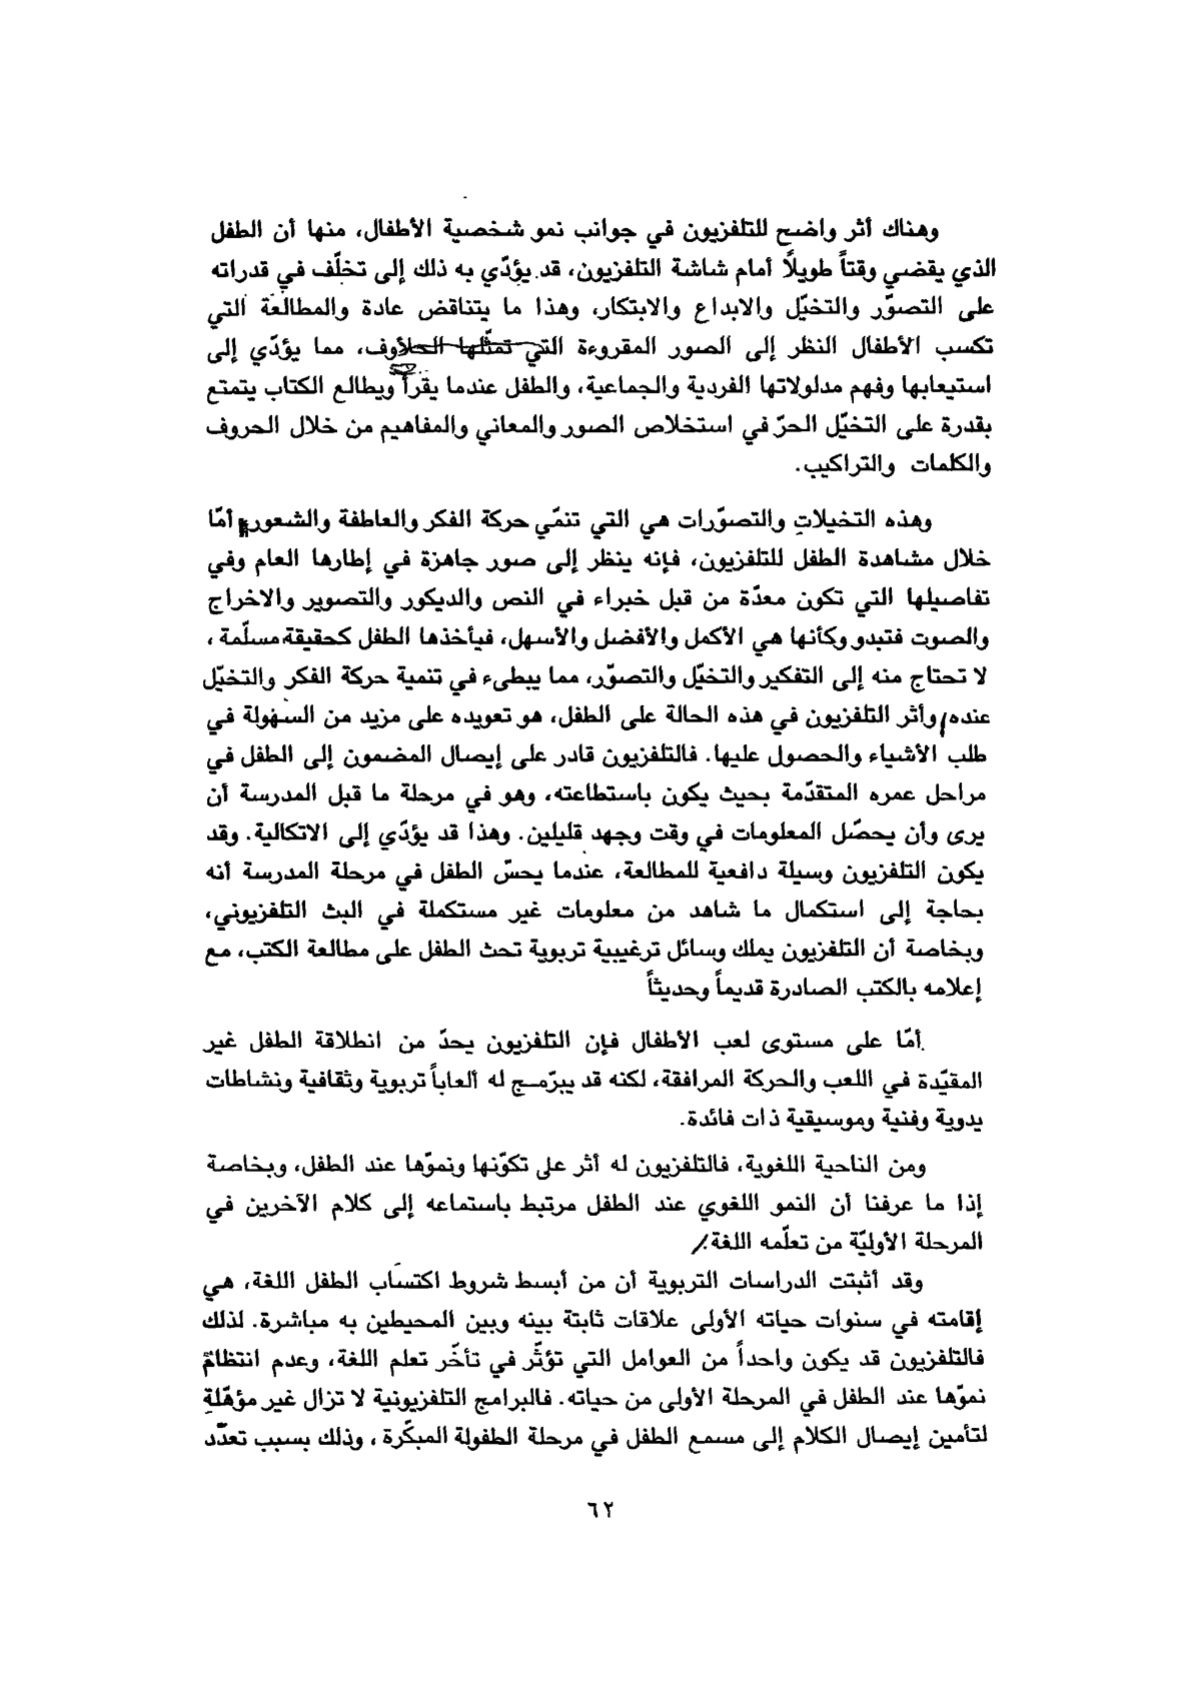 وهناك أثر واضح للتلفزيون في جوانب نمو شخصية الأطفال، منها أن الطفل
الذي يقضي وقتاً طويلًا أمام شاشة التلفزيون، قد يؤدّي به ذلك إلى تخلّف في قدراته
على التصوّر والتخيّل والابداع والابتكار، وهذا ما يتناقض عادة والمطالعة التي
تكسب الأطفال النظر إلى الصور المقروءة التي تمثّلها الحلاوف، مما يؤدّي إلى
استيعابها وفهم مدلولاتها الفردية والجماعية، والطفل عندما يقرأ ويطالع الكتاب يتمتع
بقدرة على التخيّل الحرّ في استخلاص الصور والمعاني والمفاهيم من خلال الحروف
والكلمات والتراكيب.
وهذه التخيلات والتصوّرات هي التي تنمّي حركة الفكر والعاطفة والشعور، أمّا
خلال مشاهدة الطفل للتلفزيون، فإنه ينظر إلى صور جاهزة في إطارها العام وفي
تفاصيلها التي تكون معدّة من قبل خبراء في النص والديكور والتصوير والاخراج
والصوت فتبدو وكأنها هي الأكمل والأفضل والأسهل، فيأخذها الطفل كحقيقة مسلّمة،
لا تحتاج منه إلى التفكير والتخيّل والتصوّر، مما يبطىء في تنمية حركة الفكر والتخيّل
عنده، وأثر التلفزيون في هذه الحالة على الطفل، هو تعويده على مزيد من السهولة في
طلب الأشياء والحصول عليها. فالتلفزيون قادر على إيصال المضمون إلى الطفل في
مراحل عمره المتقدّمة بحيث يكون باستطاعته، وهو في مرحلة ما قبل المدرسة أن
يرى وأن يحصّل المعلومات في وقت وجهد قليلين. وهذا قد يؤدّي إلى الاتكالية. وقد
يكون التلفزيون وسيلة دافعية للمطالعة، عندما يحسّ الطفل في مرحلة المدرسة أنه
بحاجة إلى استكمال ما شاهد من معلومات غير مستكملة في البث التلفزيوني،
وبخاصة أن التلفزيون يملك وسائل ترغيبية تربوية تحث الطفل على مطالعة الكتب، مع
إعلامه بالكتب الصادرة قديماً وحديثاً
أمّا على مستوى لعب الأطفال فإن التلفزيون يحدّ من انطلاقة الطفل غير
المقيّدة في اللعب والحركة المرافقة، لكنه قد يبرّمج له ألعاباً تربوية وثقافية ونشاطات
يدوية وفنية وموسيقية ذات فائدة.
ومن الناحية اللغوية، فالتلفزيون له أثر على تكوّنها ونموّها عند الطفل، وبخاصة
إذا ما عرفنا أن النمو اللغوي عند الطفل مرتبط باستماعه إلى كلام الآخرين في
المرحلة الأوليّة من تعلّمه اللغة.
وقد أثبتت الدراسات التربوية أن من أبسط شروط اكتساب الطفل اللغة، هي
إقامته في سنوات حياته الأولى علاقات ثابتة بينه وبين المحيطين به مباشرة. لذلك
فالتلفزيون قد يكون واحداً من العوامل التي تؤثّر في تأخّر تعلم اللغة، وعدم انتظام
نموّها عند الطفل في المرحلة الأولى من حياته. فالبرامج التلفزيونية لا تزال غير مؤهّلة
لتأمين إيصال الكلام إلى مسمع الطفل في مرحلة الطفولة المبكّرة، وذلك بسبب تعدّد
٦٢